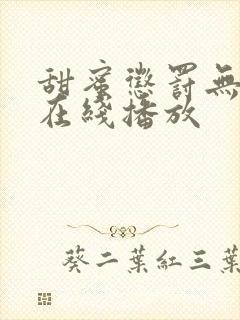 甜蜜懲罰無
在綫播放
葵二葉紅三葉